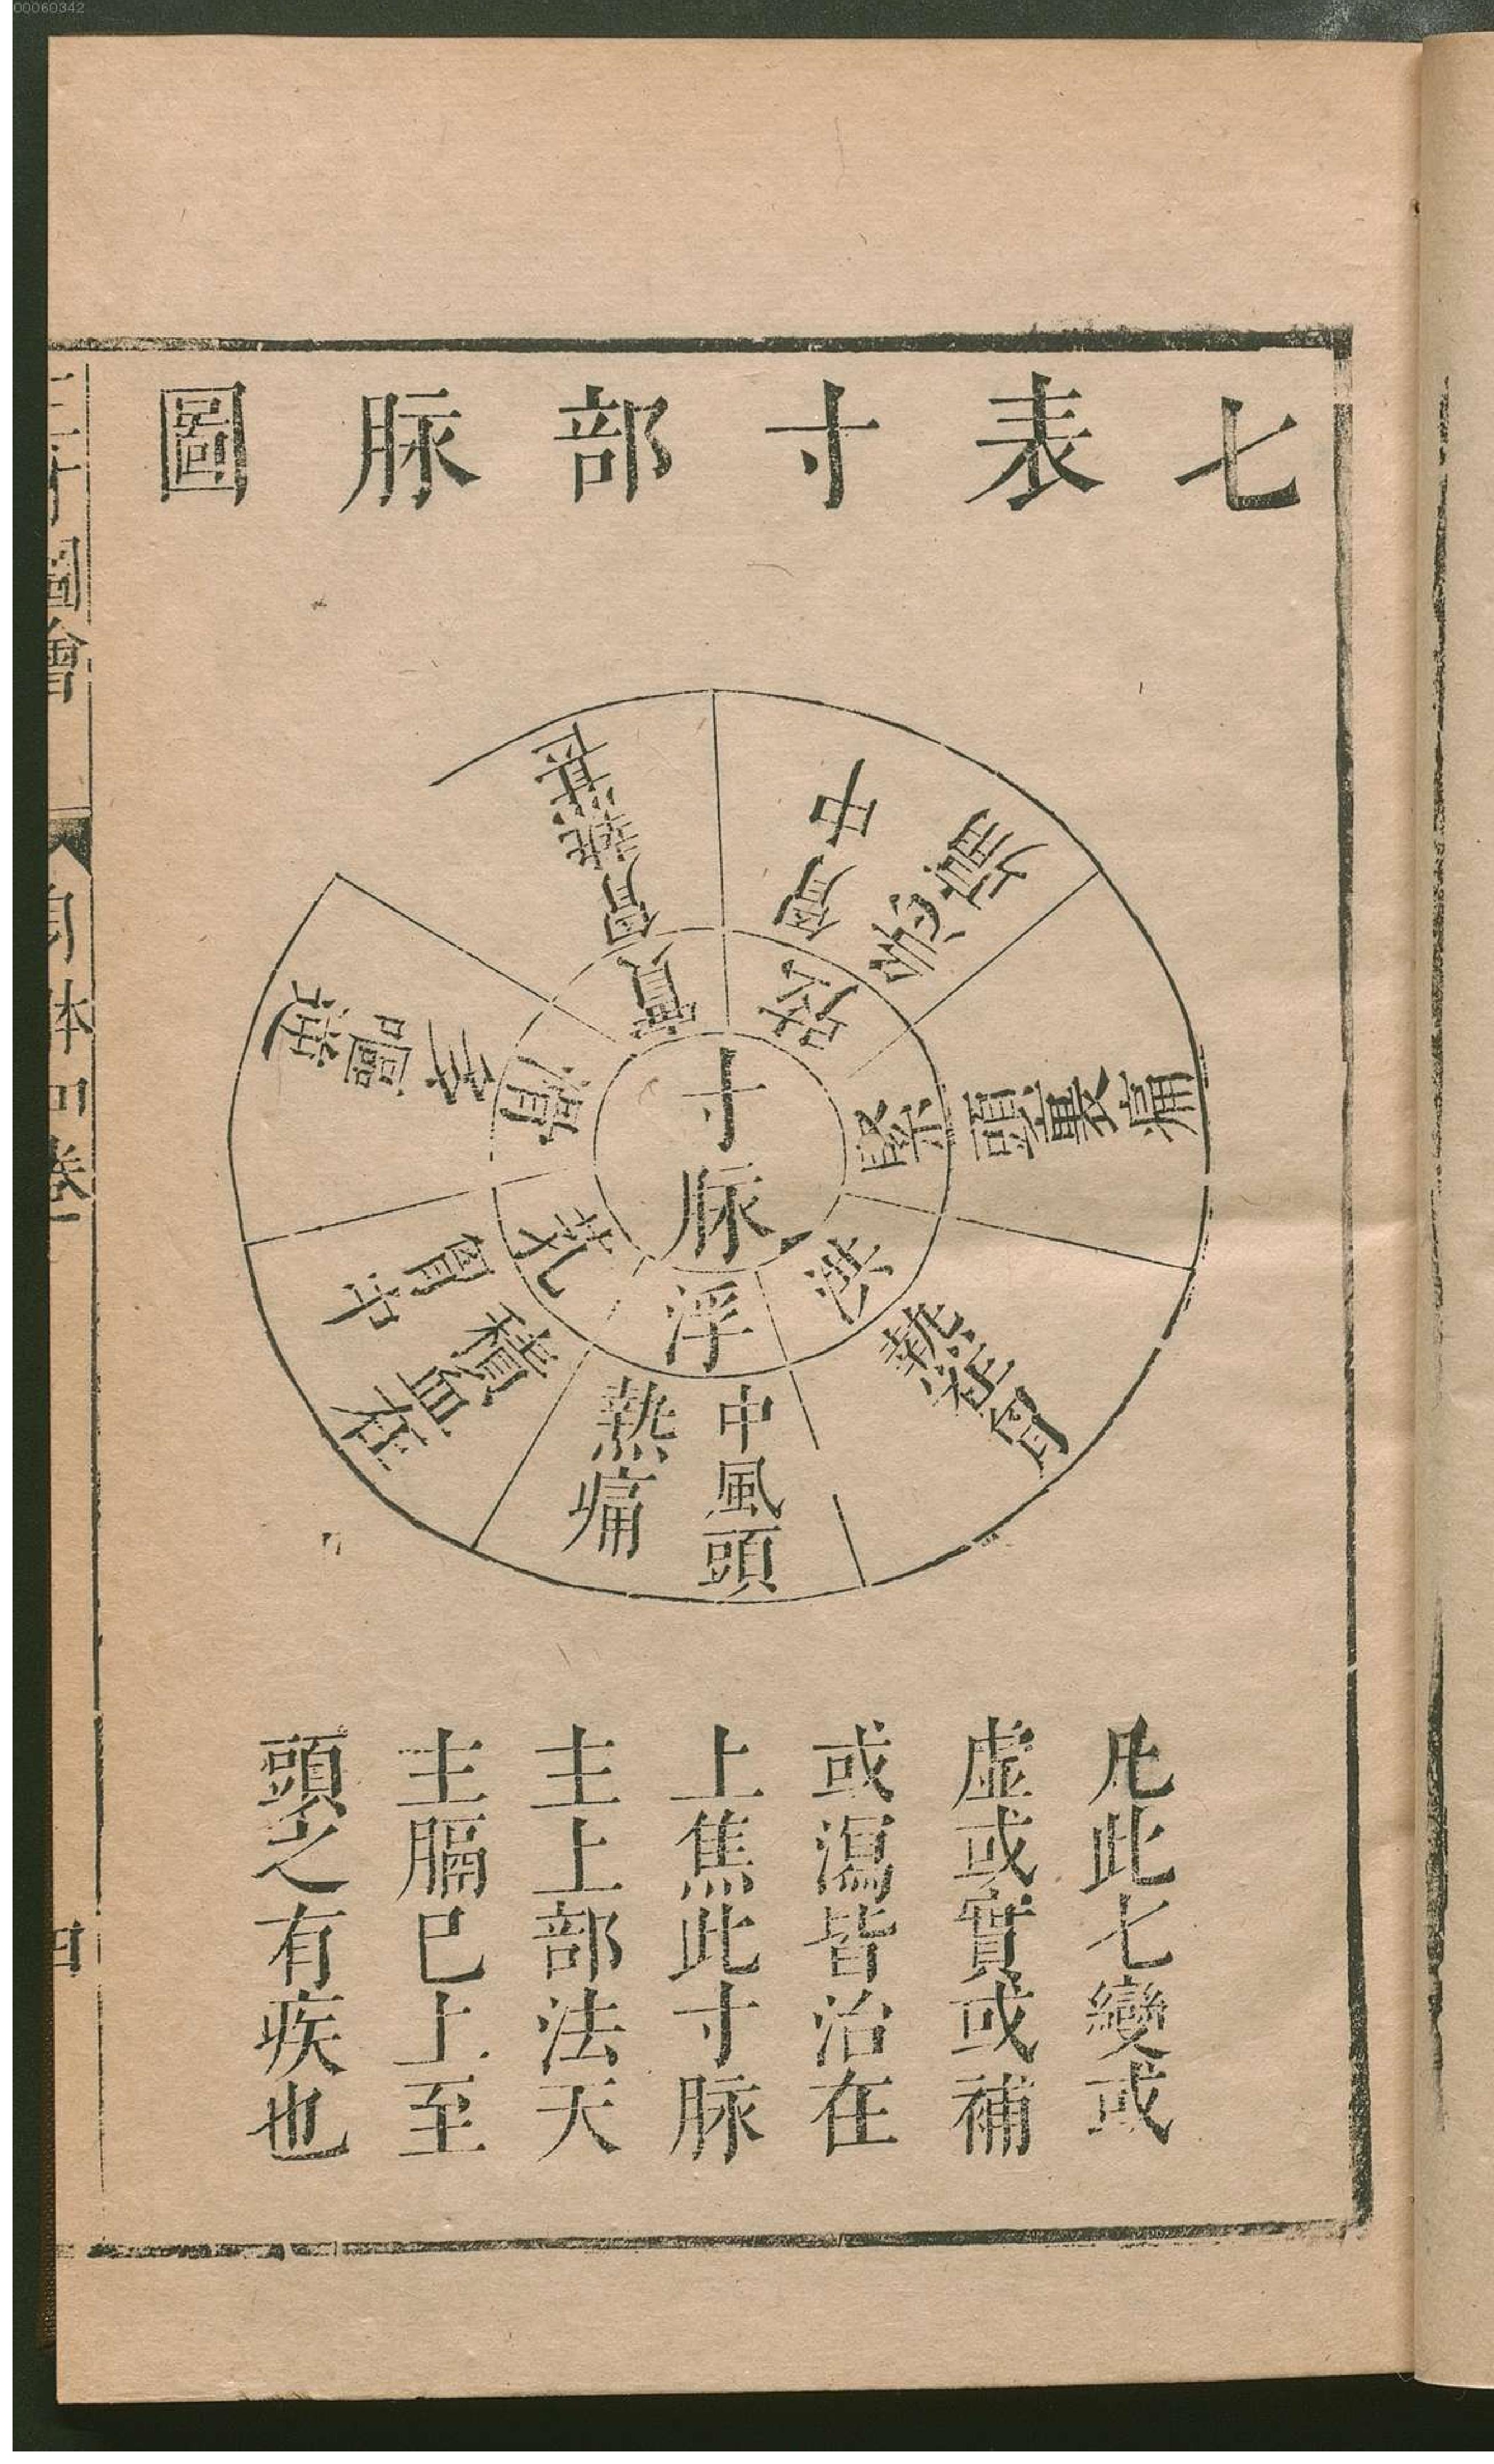 00060342
七表寸部脉圖
寸脉
浮
中風頭
熱痛
芤
積血在
胷中
滑
多嘔
逆
實
胷熱甚
弦
胷中
急痛
緊
頭裏痛
洪
熱在胷
凡此七變或
虛或實或補
或瀉皆治在
上焦此寸脉
主上部法天
主膈巳上至
頭之有疾也
三才圖會
身体四卷
四